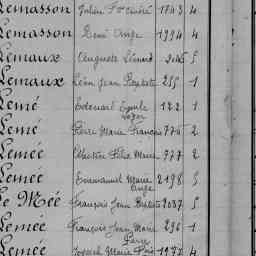 Lemasson Julien P. 1843 4
Lemasson René Ange 1994 4
Lemaux Auguste Léonard 2465 5
Lemaux Léon Jean Baptiste 255 1
Lemé Edouard Emile 122 1
Lemé Pierre Marie Francis 776 2
Lemée Célestin Félix Marie 777 2
Lemée Emmanuel Marie Ange 2198 5
Le Mée François Jean Baptiste 2037 5
Lemée François Jean Marie Pierre 296 1
Lemée Joseph Marie 1977 4